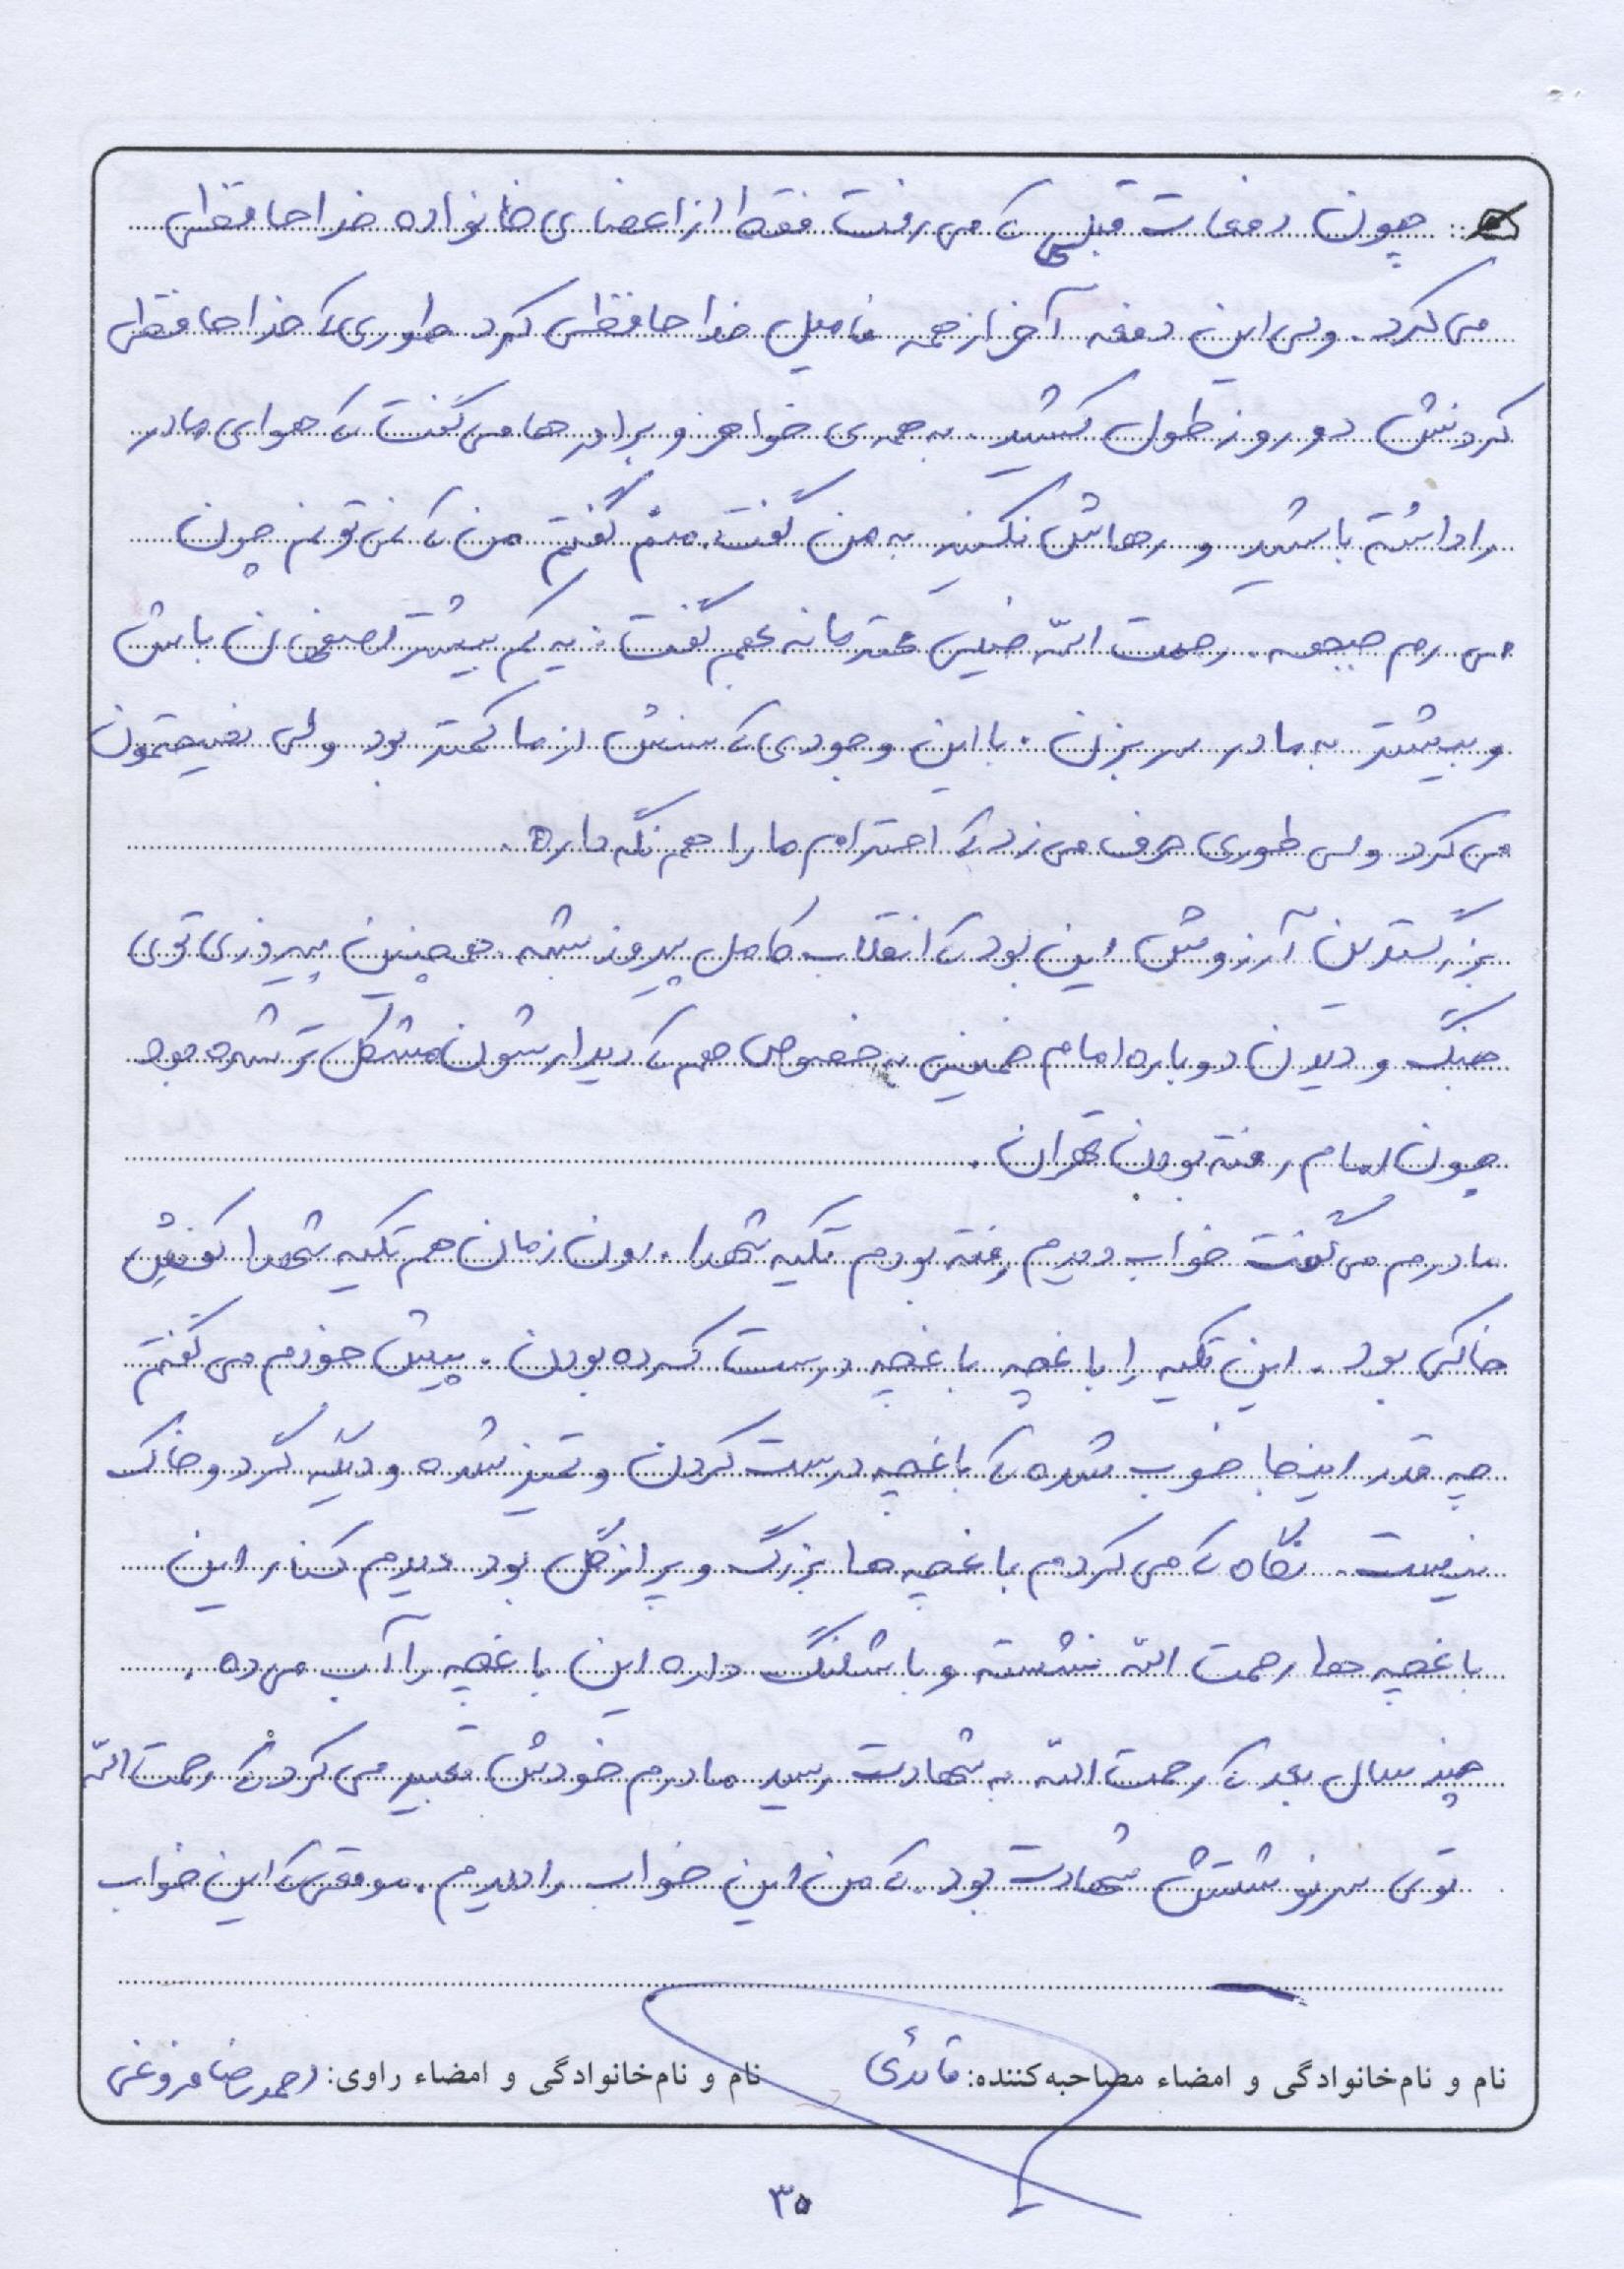 چون دفعات قبلی که می رفت فقط از اعضای خانواده خداحافظی
می کرد. ولی این دفعه آخر از همه فامیل خداحافظی کرد طوری که خداحافظی
کردنش دو روز طول کشید. به همه ی خواهر و برادرها می گفت که هوای مادر
را داشته باشید و رهاش نکنید به من گفت. منم گفتم من که نمی تونم چون
می رم جبهه. رحمت الله خیلی محترمانه بهم گفت: یه کم بیشتر اصفهان باش
و بیشتر به مادر سر بزن. با این وجودی که سنش از ما کمتر بود ولی نصیحتمون
می کرد ولی طوری حرف می زد که احترام ما را هم نگه داره.
بزرگترین آرزوش این بود که انقلاب کامل پیروز بشه. همچنین پیروزی توی
جنگ و دیدن دوباره امام خمینی به خصوص هم که دیدارشون مشکل تر شده بود
چون امام رفته بودن تهران.
مادرم می گفت خواب دیدم رفته بودم تکیه شهدا. اون زمان هم تکیه شهدا کفش
خاکی بود. این تکیه را باغچه باغچه درست کرده بودن. پیش خودم می گفتم
چه قدر اینجا خوب شده که باغچه درست کردن و تمیز شده و دیگه گرد و خاک
نیست. نگاه که می کردم باغچه ها بزرگ و پر از گل بود دیدم کنار این
باغچه ها رحمت الله نشسته و با شلنگ داره این باغچه را آب می ده.
چند سال بعد که رحمت الله به شهادت رسید مادرم خودش تعبیر می کرد که رحمت الله
توی سرنوشتش شهادت بود که من این خواب را دیدم. موقعی که این خواب
نام و نام‌خانوادگی و امضاء مصاحبه‌کننده: قائدی نام و نام‌خانوادگی و امضاء راوی: احمدرضا فروغی
۳۵